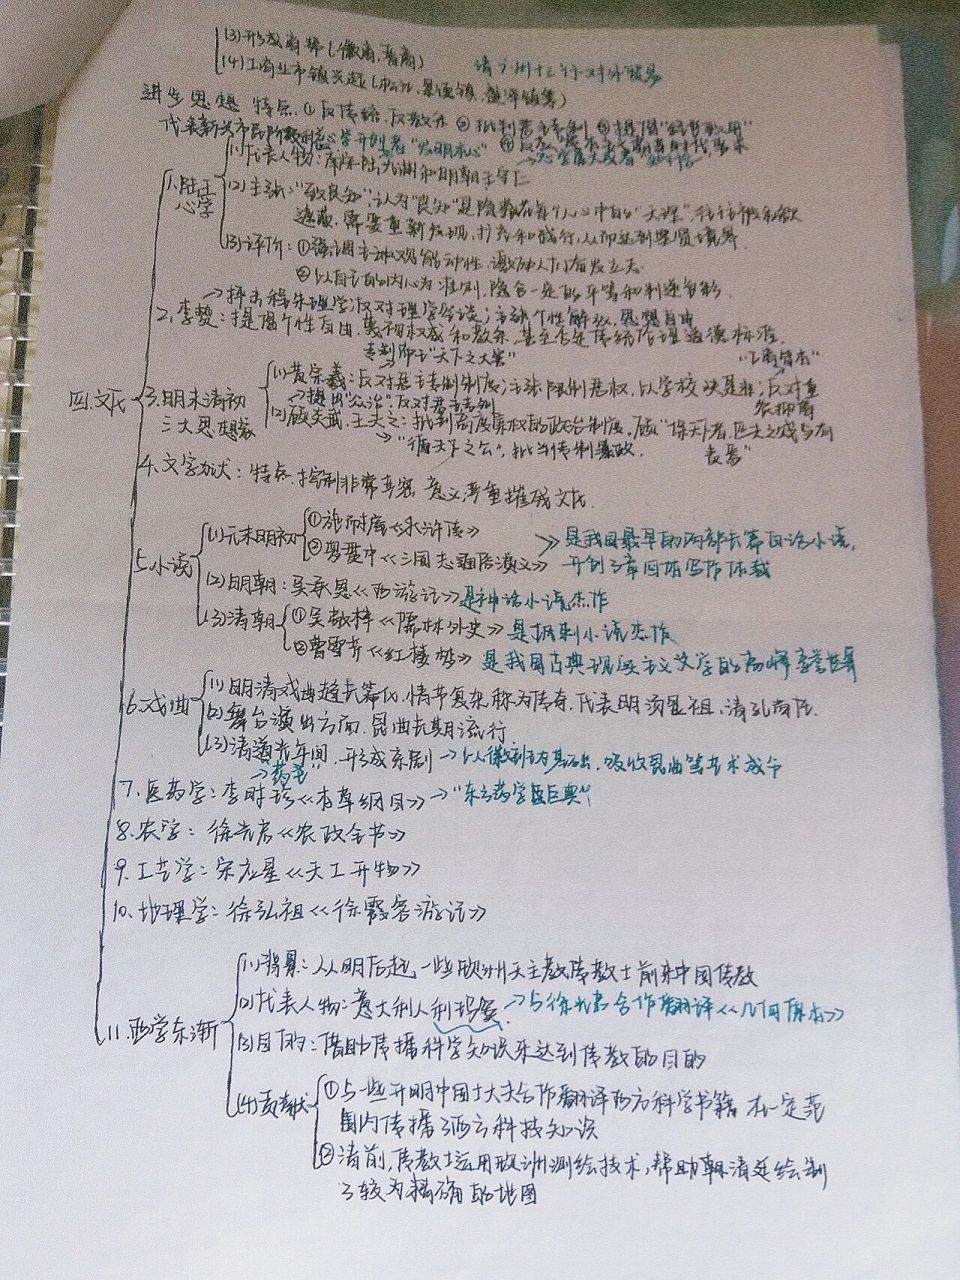 (3)形成商帮(徽商,晋商)
(4)工商业市镇兴起(松江,景德镇,盛泽镇等) 清广州十三行对外贸易
进步思想 特点:①反传统,反教条 ②批判君主专制 ③提倡"经世致用"
代表新兴市民阶级
心学开创者"发明本心"
(1)代表人物:南宋陆九渊和明朝王守仁
→心学集大成者
1.陆王心学
(2)主张:"致良知",认为"良知"是隐藏在每个人心中的"天理",往往被私欲
遮蔽,需要重新发现,扩充和践行,从而达到圣贤境界
(3)评价:①强调主观能动性,激励人们奋发立志
②以自己的内心为准则,隐含一定的平等和叛逆色彩.
→抨击程朱理学;反对理学空谈;主张个性解放,思想自由
2.李贽:提倡个性自由,蔑视权威和教条,甚至否定传统伦理道德标准.
专制帝王"天下之大害" "工商皆本"
四.文化
3.明末清初三大思想家
(1)黄宗羲:反对君主专制制度;主张限制君权,以学校决是非;反对重农抑商
→提出"公治"反对君主专制
(2)顾炎武,王夫之:批判高度集权的政治制度,顾"保天下者,匹夫之贱与有责焉"
→"循天下之公",批判专制暴政.
4.文字狱:特点:控制非常严密 意义:严重摧残文化.
5.小说
(1)元末明初 ①施耐庵《水浒传》
②罗贯中《三国志通俗演义》
是我国最早的两部长篇白话小说,
开创了章回体写作体裁
(2)明朝:吴承恩《西游记》是神话小说杰作
(3)清朝 ①吴敬梓《儒林外史》是讽刺小说杰作
②曹雪芹《红楼梦》 是我国古典现实主义文学的高峰 享誉世界
6.戏曲
(1)明清戏曲趋长篇化,情节复杂称为传奇,代表明汤显祖,清孔尚任.
(2)舞台演出方面,昆曲长期流行
(3)清道光年间,形成京剧→以徽剧为基础,吸收昆曲等艺术成分
→"药圣"
7.医药学:李时珍《本草纲目》→"东方药学巨典"
8.农学:徐光启《农政全书》
9.工艺学:宋应星《天工开物》
10.地理学:徐弘祖《徐霞客游记》
11.西学东渐
(1)背景:从明后起,一些欧洲天主教传教士前来中国传教
(2)代表人物:意大利人利玛窦.→与徐光启合作翻译《几何原本》
(3)目的:借助传播科学知识来达到传教的目的
(4)贡献 ①与一些开明中国士大夫合作翻译西方科学书籍 在一定范
围内传播了西方科技知识
②清前,传教士运用欧洲测绘技术,帮助朝清廷绘制
了较为精确的地图